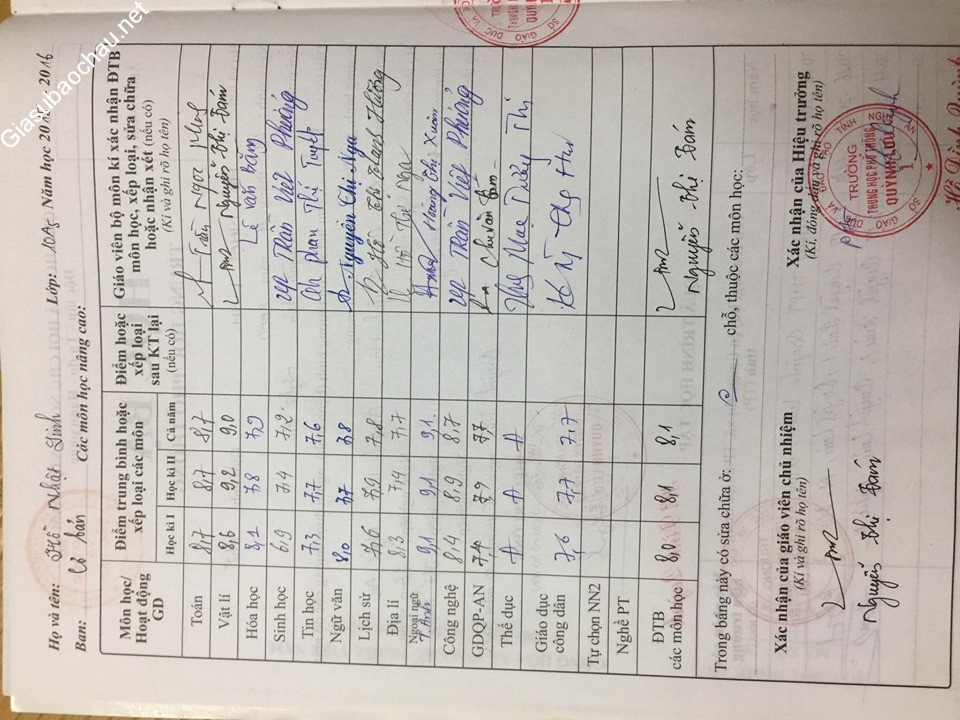 Giasubaochau.net
Họ và tên: Hồ Nhật Linh Lớp: 10A5 Năm học 2015 - 2016
Ban: Cơ bản Các môn học nâng cao:
Môn học/ Hoạt động GD
Điểm trung bình hoặc xếp loại các môn
Học kì I Học kì II Cả năm
Điểm hoặc xếp loại sau KT lại (nếu có)
Giáo viên bộ môn kí xác nhận ĐTB môn học, xếp loại, sửa chữa hoặc nhận xét (nếu có)
(Kí và ghi rõ họ tên)
Toán 8,7 8,7 8,7 Trần Ngọc
Vật lí 8,6 9,2 9,0 Nguyễn Thị Đám
Hóa học 8,1 7,8 7,9 Lê Văn Băng
Sinh học 6,9 7,4 7,2 Trần Viết Phương
Tin học 7,3 7,7 7,6 Phan Thị Tuyết
Ngữ văn 8,0 7,7 7,8 Nguyễn Thị Nga
Lịch sử 7,6 7,9 7,8 Hồ Thị Hường
Địa lí 8,3 7,4 7,7 Nga
Ngoại ngữ T.Anh 9,1 9,1 9,1 Hoàng Thị Xuân
Công nghệ 8,4 8,9 8,7 Trần Viết Phương
GDQP-AN 7,4 7,9 7,7 Chu Văn
Thể dục A A A Mai Thủy Thị
Giáo dục công dân 7,6 7,7 7,7
Tự chọn NN2
Nghề PT
ĐTB các môn học 8,0 8,1 8,1 Nguyễn Thị Đám
Trong bảng này có sửa chữa ở: chỗ, thuộc các môn học:
Xác nhận của giáo viên chủ nhiệm
(Kí và ghi rõ họ tên)
Nguyễn Thị Đám
Xác nhận của Hiệu trưởng
(Kí, đóng dấu và ghi rõ họ tên)
SỞ GIÁO DỤC VÀ ĐÀO TẠO TỈNH NGHỆ AN
TRƯỜNG
TRUNG HỌC PHỔ THÔNG
QUỲNH LƯU 1